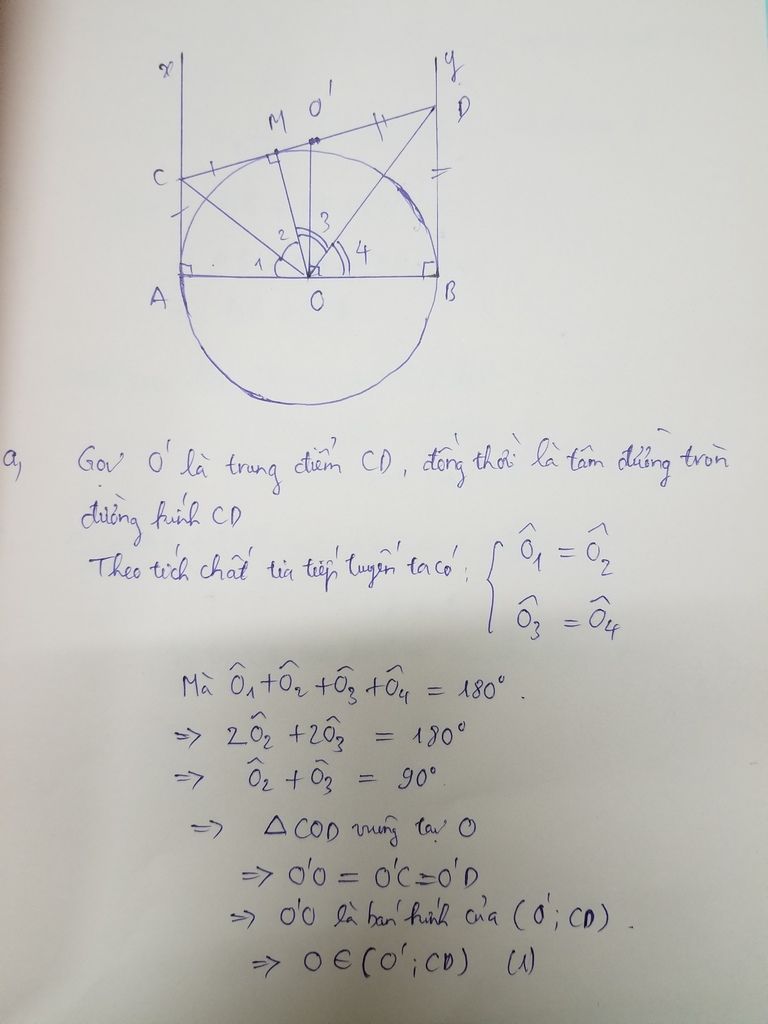 x
y
M O'
D
C
2 3
1 4
A O B
a, Gọi O' là trung điểm CD, đồng thời là tâm đường tròn
đường kính CD
Theo tích chất tia tiếp tuyến ta có: { Ô1 = Ô2
Ô3 = Ô4
Mà Ô1 + Ô2 + Ô3 + Ô4 = 180°.
=> 2Ô2 + 2Ô3 = 180°
=> Ô2 + Ô3 = 90°
=> △COD vuông tại O
=> O'O = O'C = O'D
=> O'O là bán kính của (O'; CD).
=> O ∈ (O'; CD) (1)